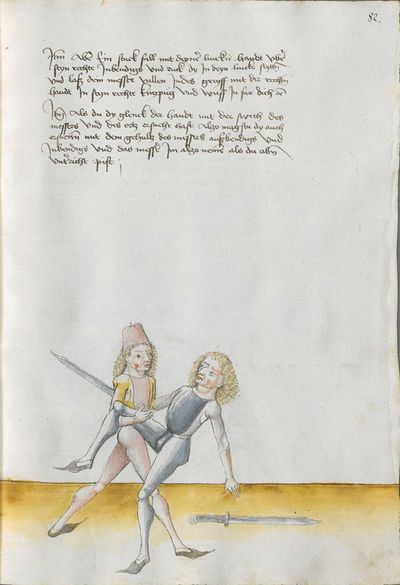 82.
Itm Aber Ein stuck fall mit deyner lincken handt vber
seyn rechte Inbendigs vnd ruck In deyn linck seytn
vnd lasz dein messer vallen Indes greyff mit der rechtn
handt In seyn rechte kniepug vnd wurff In fur dich
Itm Als du dy glenck der handt mit der swech des
messers vnd des ortz ersucht hast Also magstu dy auch
ersuchn mit dem gehultz des messers auszbendigs vnd
Inbendigs vnd das messer Im also neme als du obn
vntricht pist